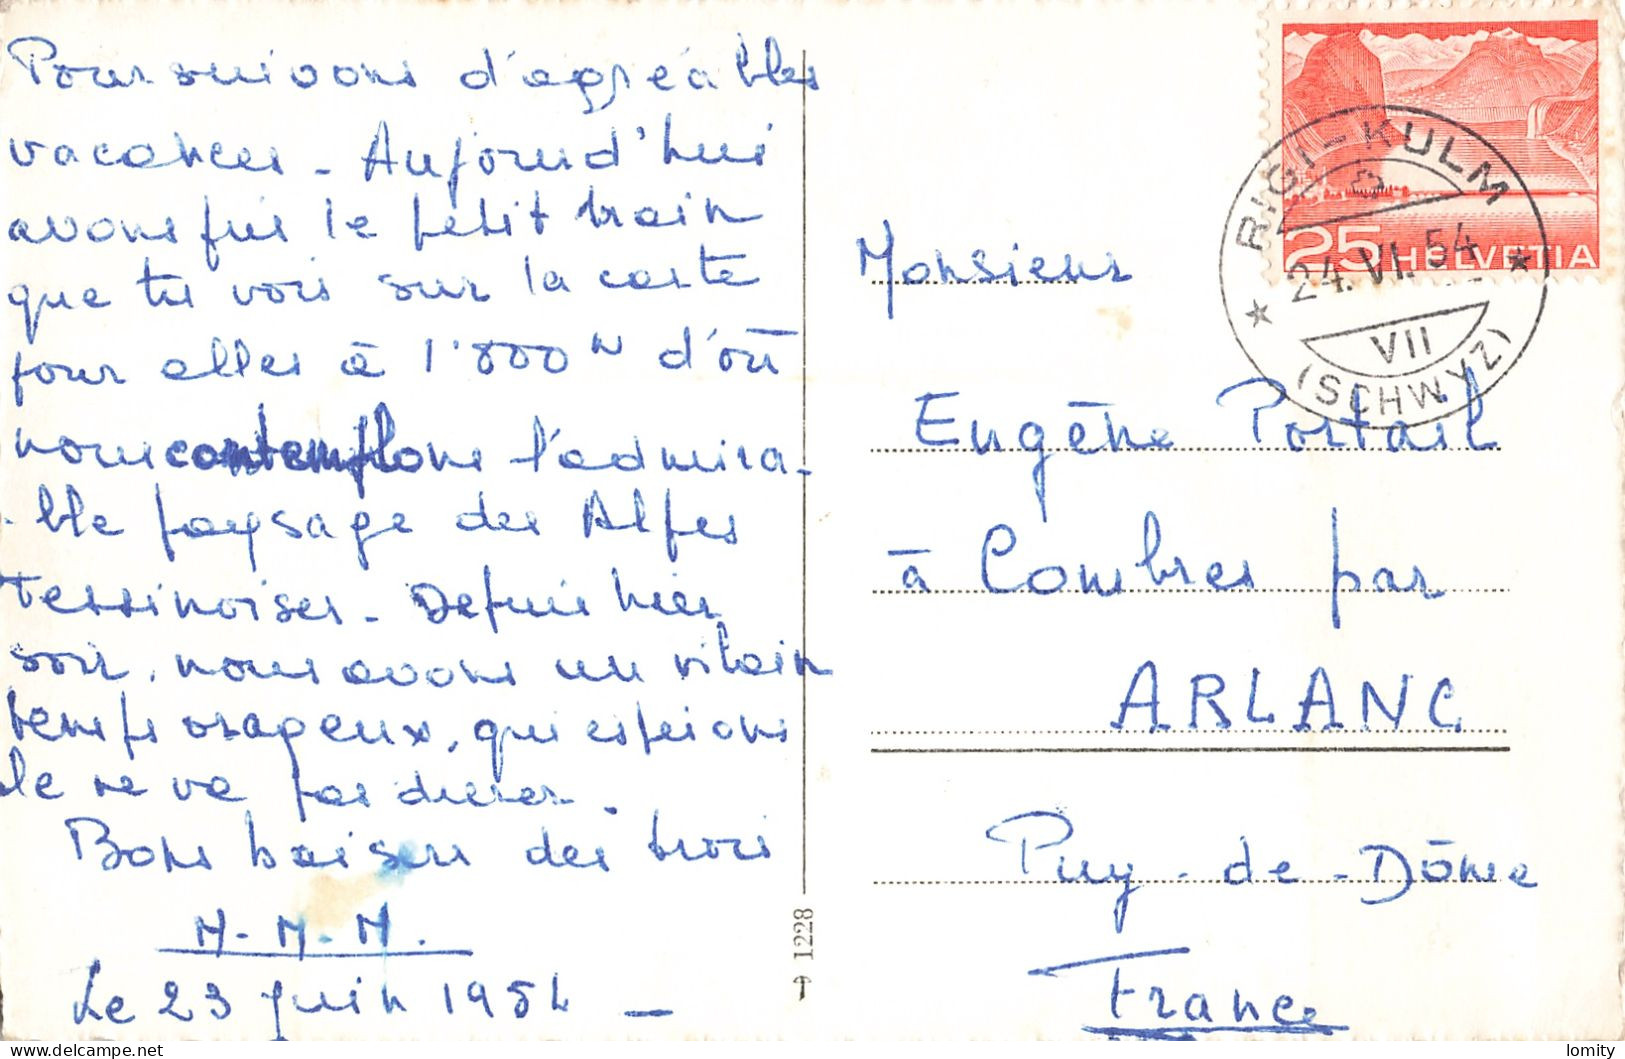 Poursuivons d'agréables
vacances - Aujourd'hui
avons pris le petit train
que tu vois sur la carte
pour aller à 1'800 m d'où
nous contemplons l'admira-
-ble paysage des Alpes
Tessinoises. Depuis hier
soir, nous avons un vilain
temps orageux, qui espérons
le ne va pas durer.
Bons baisers des trois
M. M. M.
Le 23 juin 1954 -
Monsieur
Eugène Portail
à Combres par
ARLANC
Puy-de-Dôme
France
RIGI-KULM
24.VI.54
VII
(SCHWYZ)
25 HELVETIA
1228
delcampe.net
lomity